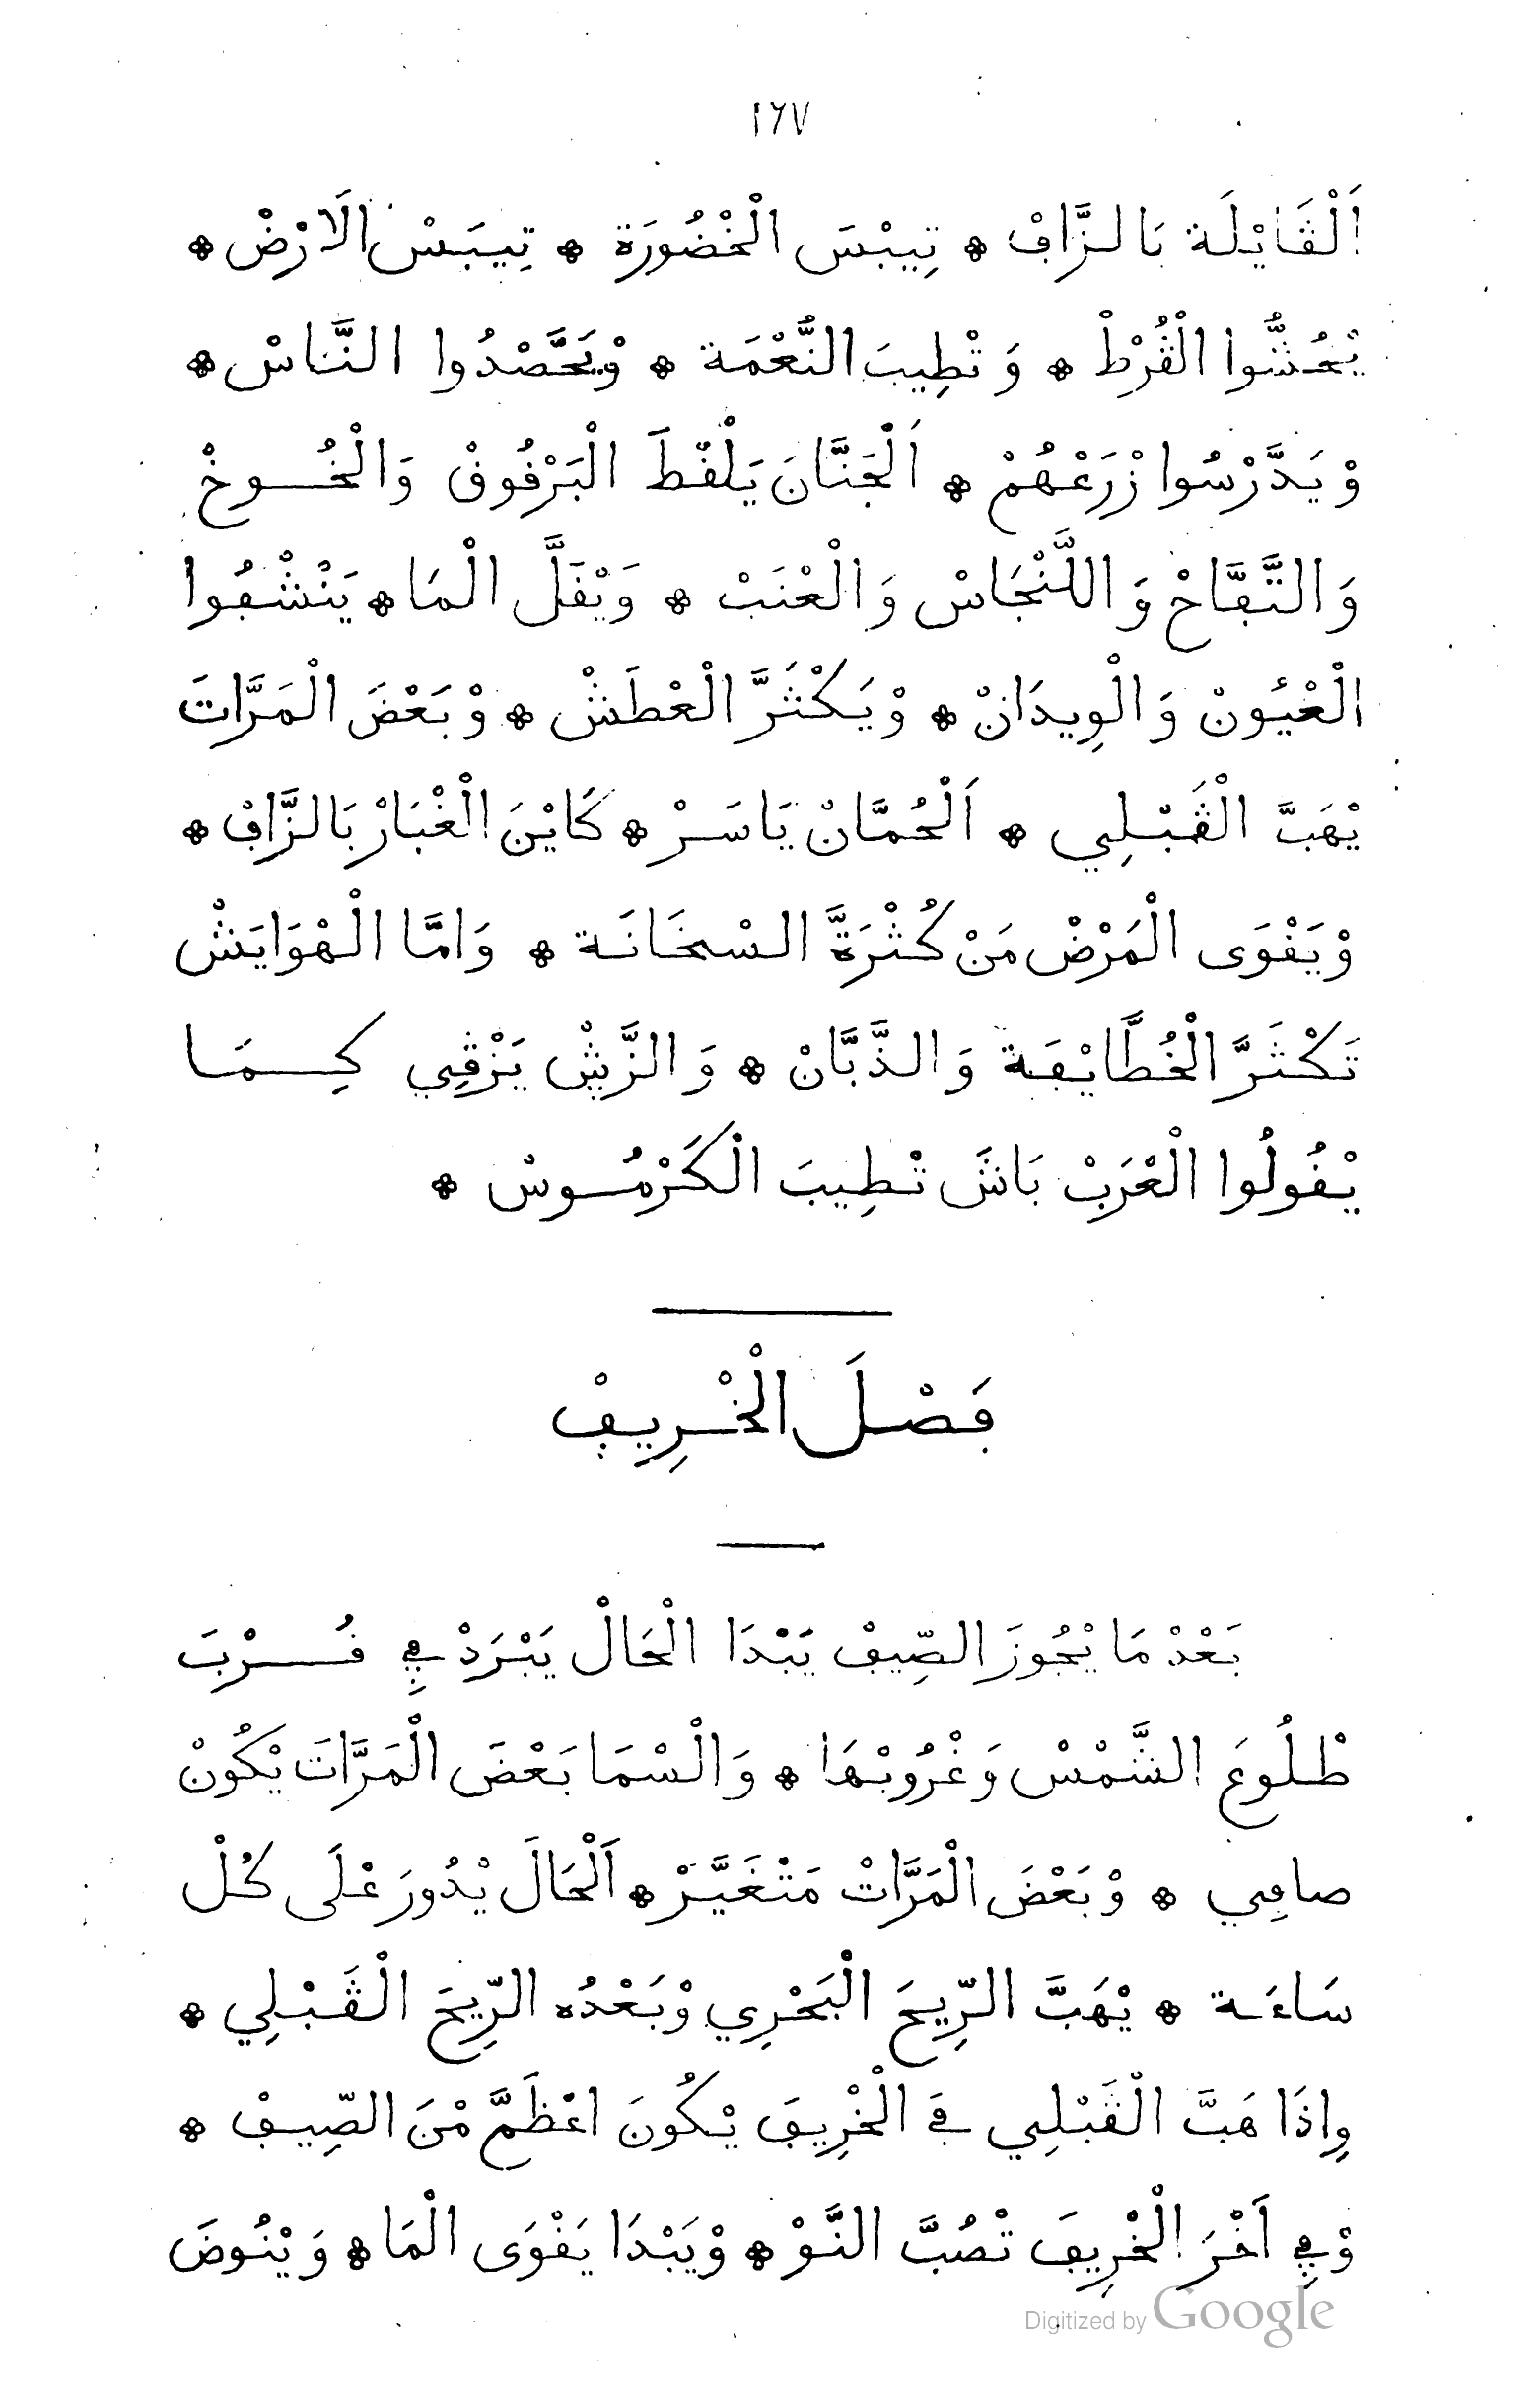 ١٦٧
اَلْڨَايْلَة بَالزَّافْ * تِيبْسَ الْخْضُورَة * تِيبَسْ الَارْضْ *
يْحُشُّوا الْڨُرْطْ * وَتْطِيبَ النُّعْمَة * وْيَحَّصْدُوا النَّاسْ *
وْيَدَّرْسُوا زْرَعْهُمْ * اَلْجَنَّانَ يَلْقُطَ الْبَرْقُوقْ وَالْخُوخْ
وَالتَّفَّاحْ وَاللَّنْجَاسْ وَالْعْنَبْ * وَيْقَلَّ الْمَا * يَنْشْفُوا
الْعْيُونْ وَالْوِيدَانْ * وْيَكْثَرَّ الْعْطَشْ * وْبَعْضَ الْمَرَّاتَ
يْهَبَّ الْڨَبْلِي * اَلْحُمَّانْ يَاسَرْ * كَايْنَ الْغْبَارْ بَالزَّافْ *
وْيَقْوَى الْمَرْضْ مَنْ كُثْرَةَّ السْخَانَة * وَامَّا الْهْوَايَشْ
تَكْثَرَّ الْخُطَّايْفَة وَالذَّبَّانْ * يَزْڨِي كِمَا
يْقُولُوا الْعْرَبْ بَاشَ تْطِيبَ الْكَرْمُوسْ *
فَصْلَ الْخْرِيفْ
بَعْدْ مَا يْجُوزَ الصِّيفْ يَبْدَا الْحَالْ يَبْرَدْ فِي قُرْبَ
طْلُوعَ الشَّمْسْ وَغْرُوبْهَا * وَالْسْمَا بَعْضَ الْمَرَّاتَ يْكُونْ
صافِي * وْبَعْضَ الْمَرَّاتْ مَتْغَيَّرْ * اَلْحَالَ يْدُورَ عْلَى كُلْ
سَاعَة * يْهَبَّ الرِّيحَ الْبَحْرِي وْبَعْدُه الرِّيحَ الْڨَبْلِي *
وِاذَا هَبَّ الْڨَبْلِي فَ الْخْرِيفَ يْكُونَ اعْظَمَّ مْنَ الصِّيفْ *
وْفِي اَخْرَ الْخْرِيفَ تْصُبَّ النَّوْ * وْيَبْدَا يَقْوَى الْمَا * وَيْنُوضَ
Digitized by Google